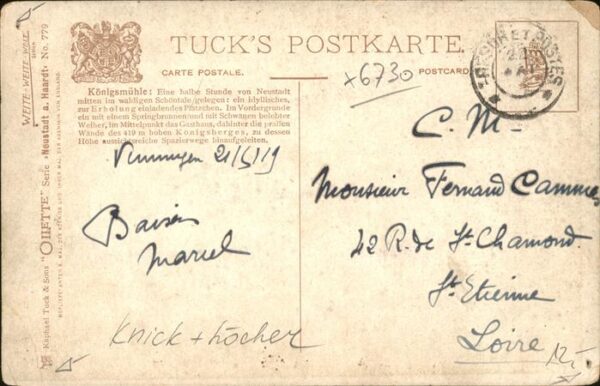 TUCK'S POSTKARTE.
CARTE POSTALE.
POSTCARD
Königsmühle: Eine halbe Stunde von Neustadt
mitten im waldigen Schöntale gelegen: ein idyllisches,
zur Erholung einladendes Plätzchen. Im Vordergrunde
ein mit einem Springbrunnen und mit Schwänen belebter
Weiher, im Mittelpunkt das Gasthaus, dahinter die prallen
Wände des 419 m hohen Königsberges, zu dessen
Höhe aussichtsreiche Spazierwege hinaufgehen.
x6730
TRESOR ET POSTES
21/5/19
Baisers
Marcel
Knick + Löcher
C. M-
Monsieur Fernand Cammes
42 R. de St. Chamond.
St. Etienne
Loire
12,-
WEITE-WEITE WELT
Raphael Tuck & Sons "OILETTE" Serie »Neustadt a. Haardt« No. 779